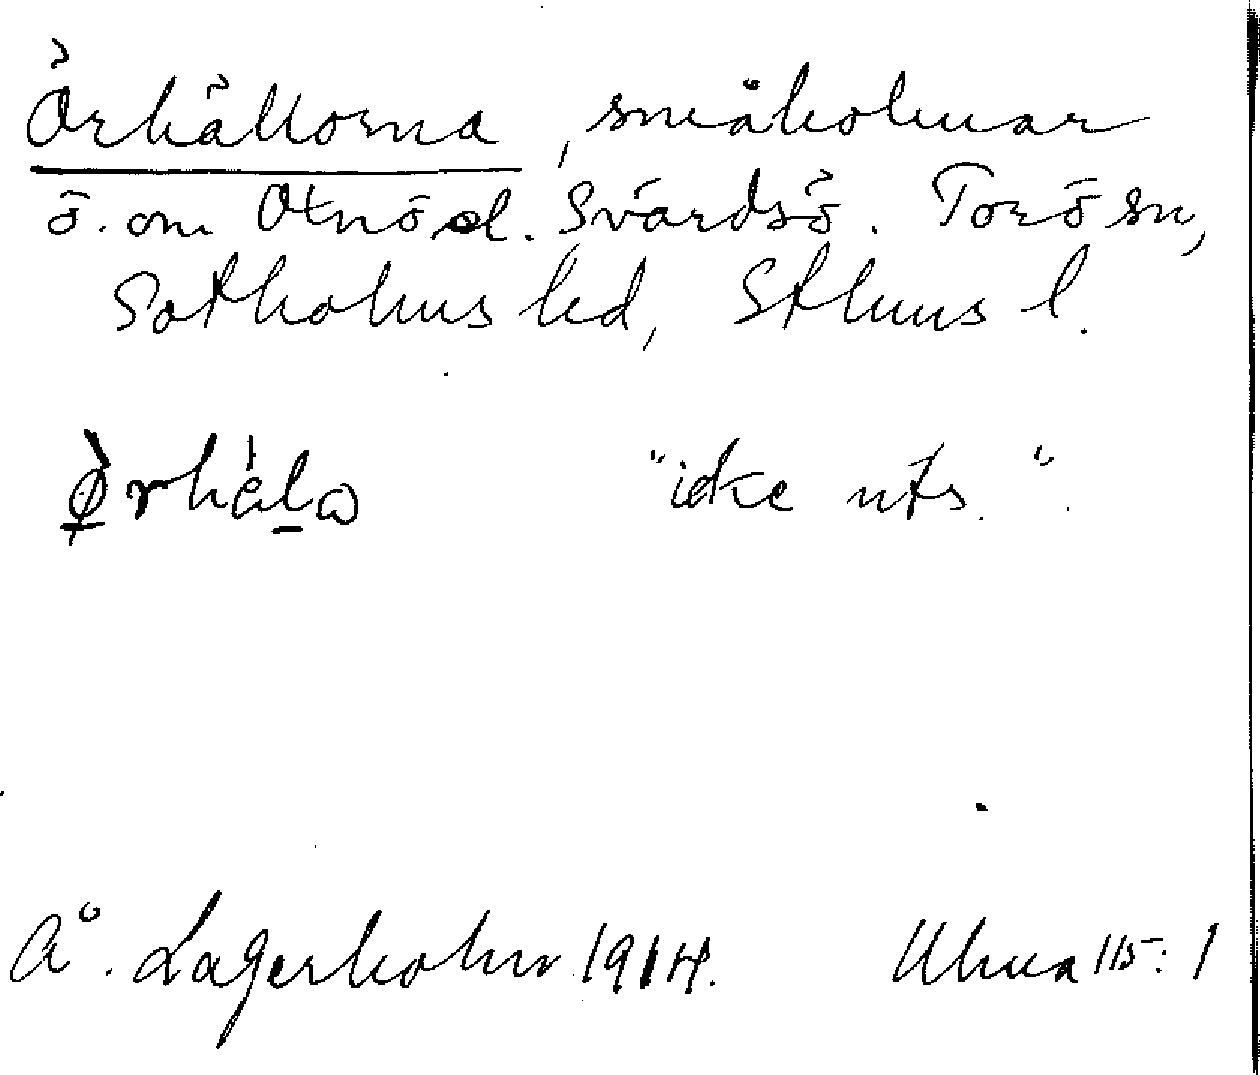 Örhällorna, småholmar
ö. om Otnö, d. Svärdsö. Torö sn,
Sotholms hd, Sthlms l.
"icke uts.".
Å. Lagerholm 1914. Ulma 115:1